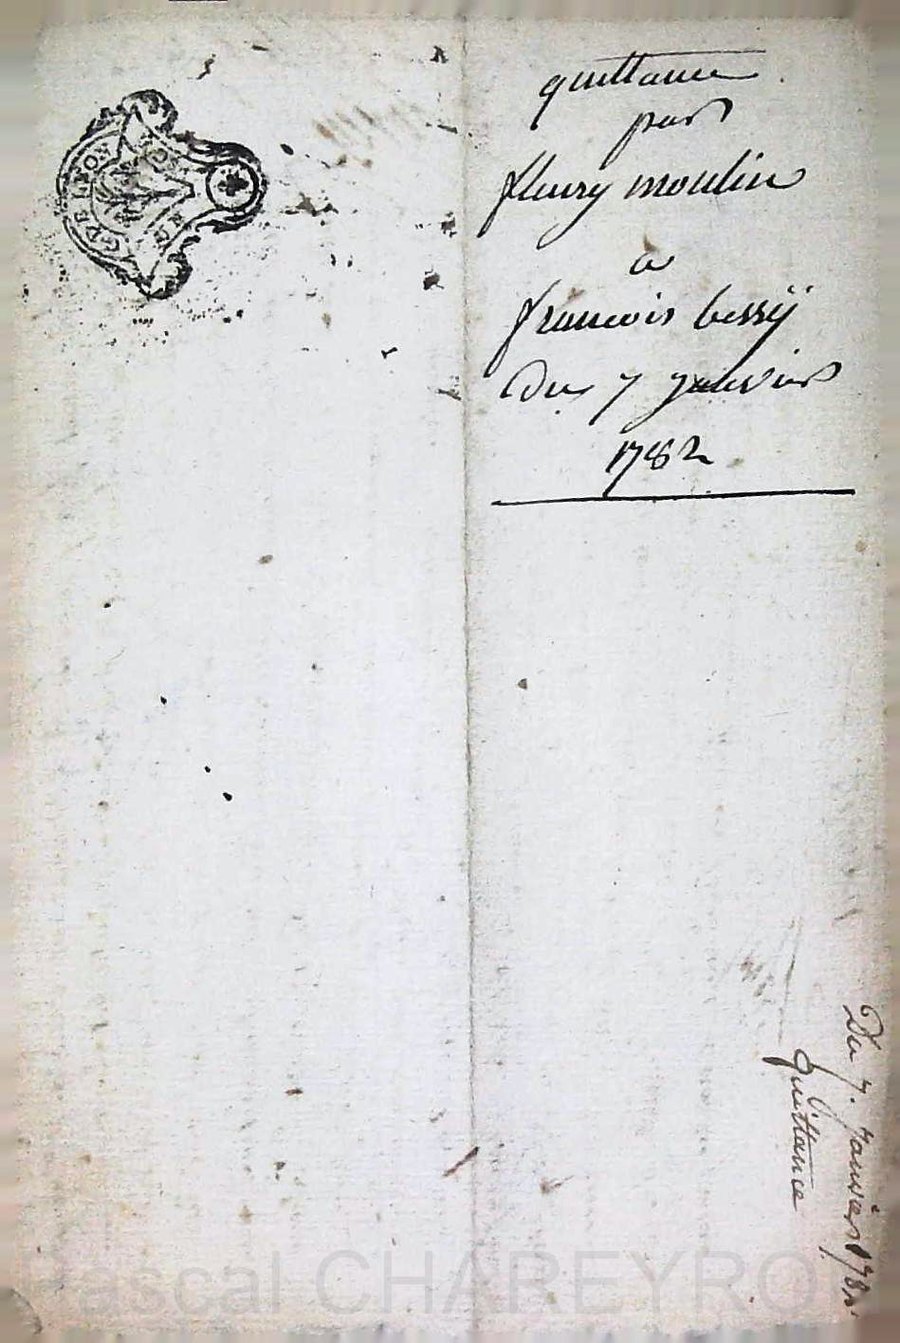 quittance
par
fleury moulin
a
francois bessÿ
Du 7 janvier
1782
Du 7. janvier 1782.
Quittance
G DE LYON
Pascal CHAREYRO